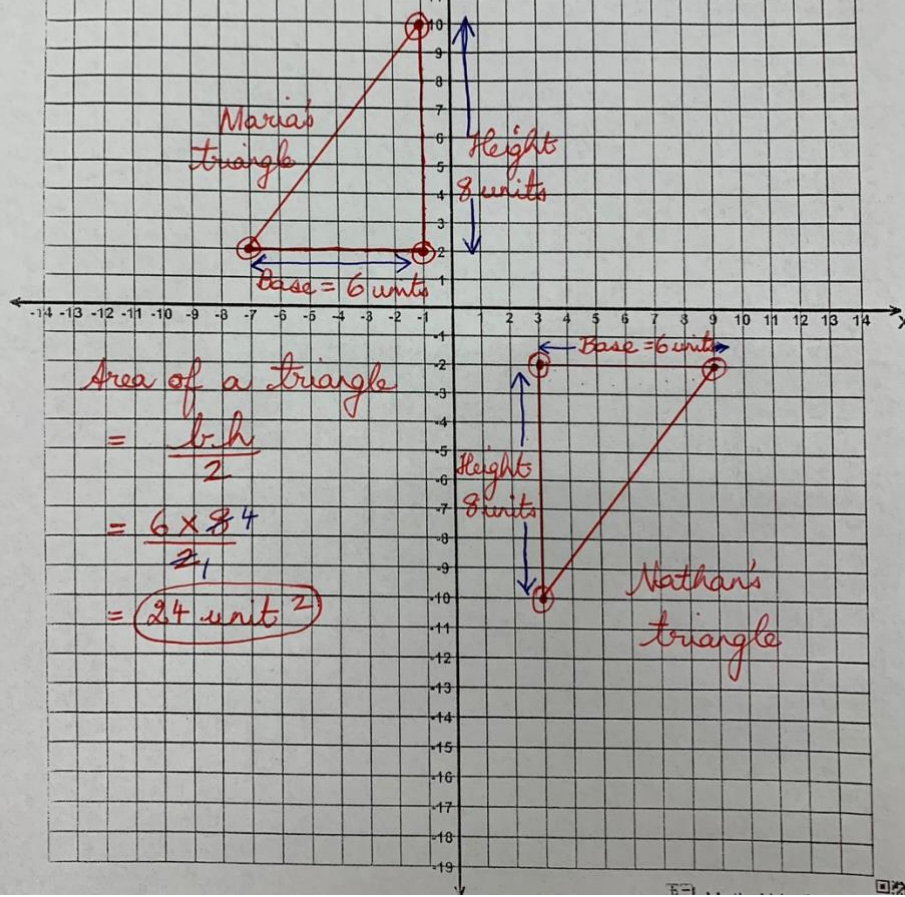 10
9
8
7
6
5
4
3
2
1
Maria's
triangle
Height
8 units
Base = 6 units
-14 -13 -12 -11 -10 -9 -8 -7 -6 -5 -4 -3 -2 -1 1 2 3 4 5 6 7 8 9 10 11 12 13 14 X
-1
-2
-3
-4
-5
-6
-7
-8
-9
-10
-11
-12
-13
-14
-15
-16
-17
-18
-19
Base = 6 units
Height
8 units
Nathan's
triangle
Area of a triangle
= b.h
2
= 6 × 8 4
2 1
= 24 unit ²